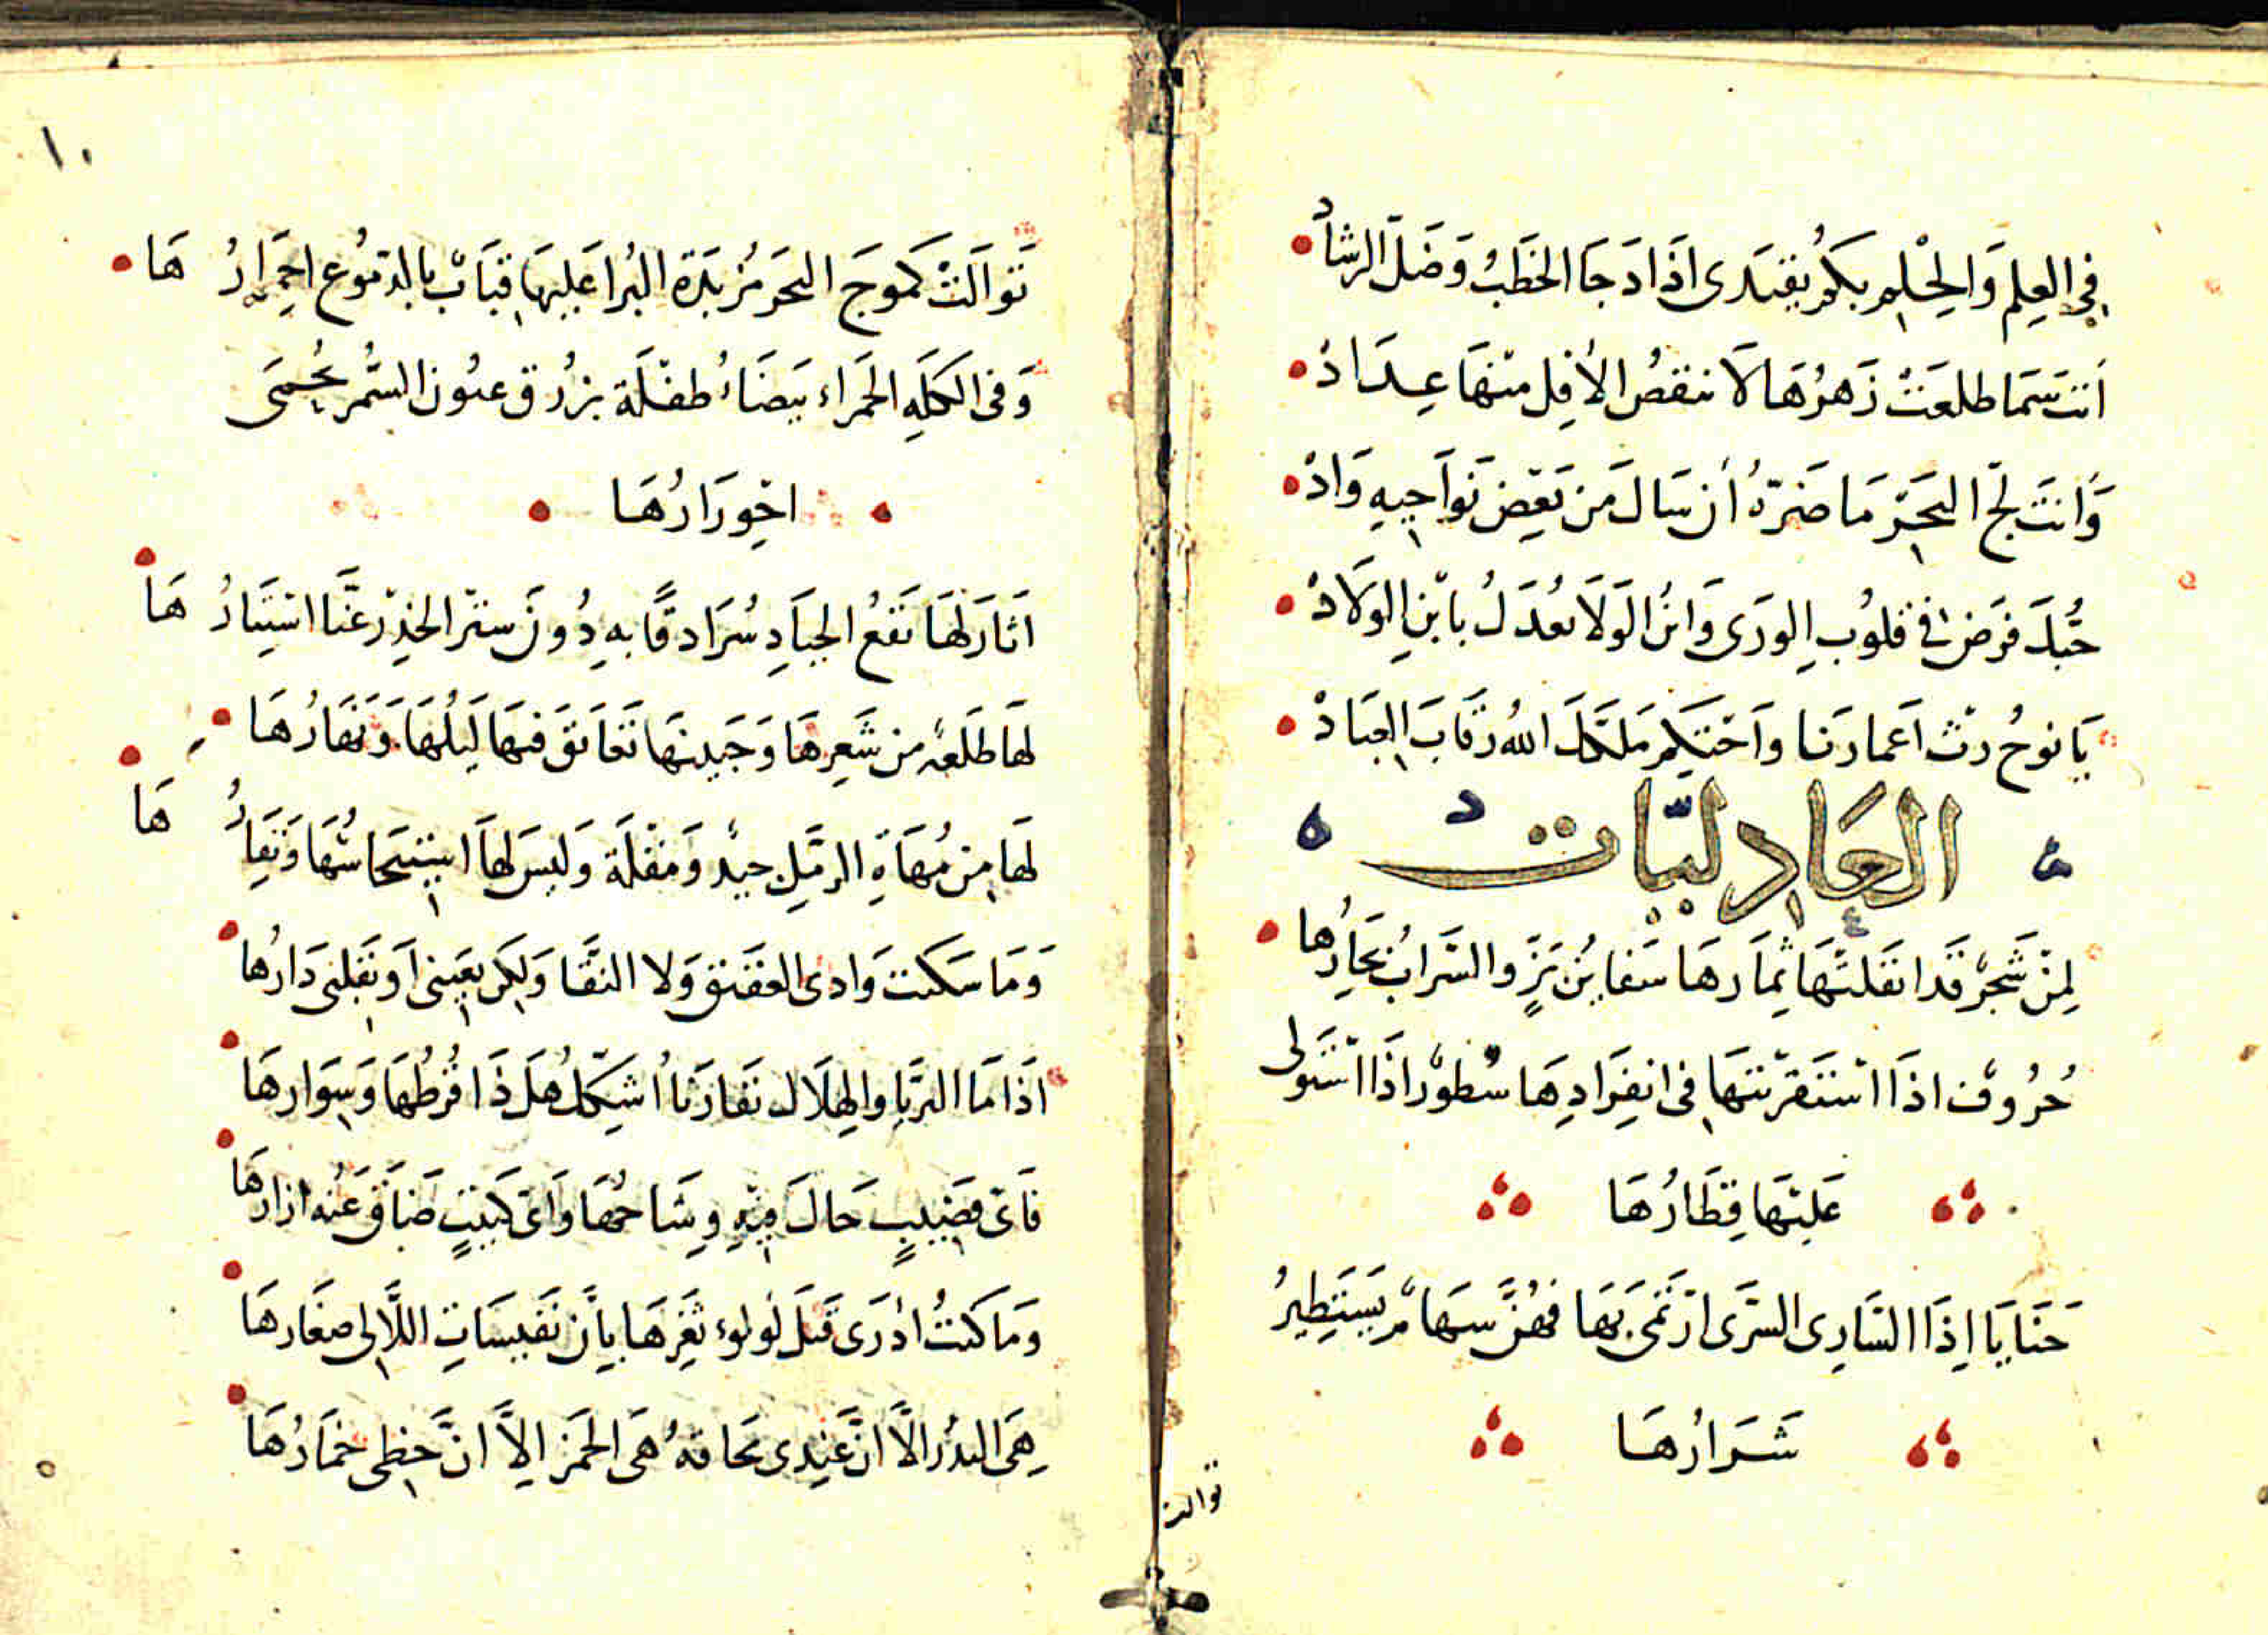 فِي العِلمِ وَالحِلْمِ بكُم يقتَدى اذَا دَجَا الخَطبُ وَضَلَّ الرشادْ
انت سَمَا طلعَتْ زَهرُهَا لَا ينقصُ الأفِل منهَا عِدَادْ
وَانتَ لجّ البَحَر مَا ضَرّهُ أن سَالَ من بَعِض نَواَحِيهِ وَادْ
حُبُّكَ فرَض فى قلوُبِ الورَى وَابنُ الوَلَا يعُدَلُ بابْنِ الولَادْ
يَا نوحُ رثْ اَعمارنَا وَاحتكِم مَلَّككَ اللهُ رقَابَ العبَادْ
العَادِليَّات
لِمِنْ شَجْر قَد اثقَلتْهَا ثِمَارهَا سَفايُن بَرٍّ والسَّرابُ بحَارُها
حُرُوف اذَا اسْتَقرْيتهَا فى انفِرَادِهَا سُطورٌ اذَا اسْتَولى
عَليْهَا قِطَارُهَا
حَنَايَا اِذَا السَّارِى السُّرَى ارْتَمَى بهَا فهُنَّ سهَامٌ يَستَطِيرُ
شَرَارُهَا
توالت
١٠
تَوَالَتْ كَموجَ البَحَر مُزبَدَة البُرا عَليهَا قبَابٌ بالدمُوع احمِرارُ هَا
وَفى الكَلَةِ الحَمراء بَيضَاءُ طفْلَة بزُرقِ عيُون السُّمر يحُمَى
احْوِرَارُهَا
اَثارَ لهَا نَقعُ الجيَادِ سُرَادقًا بهِ دُونَ سترْ الخِدرْ عَنَّا اسْتِتَارُ هَا
لهَا طَلعَةٌ من شَعِرهَا وَجَبينهَا تَعَانَقَ فيهَا لَيلُهَا وَنَهَارُهَا
لهَا مِن مُهَاةِ الرمَلِ جيدٌ وَمقْلَة وَليسَ لهَا استيحَاشُهَا وَنفَارُ هَا
وَمَا سَكنت وَادى العقَيق وَلا النقَّا وَلكِن بعَينى اَو بقَلبى دَارُها
اذَا مَا الثريَّا والهلَال تقَارَنَا اُشَكّكُ هَل ذَا قرُطُهَا وَسوَارهَا
فاَىّ قضَيبٍ حَالَ فيْهِ وِشَاحُهَا وَاىّ كَثيبٍ ضَاقَ عَنْه ازارهَا
وَمَا كنتُ ادْرَى قَبلَ لُولوء ثغِرهَا بِاَن نفَيسَاتِ اللَّالى صغَارهَا
هِىَ البدُر الاَّ انَّ عنِدى محَاقهُ هىَ الخَمر الِاَّ انَّ حظِى خمَارُهَا